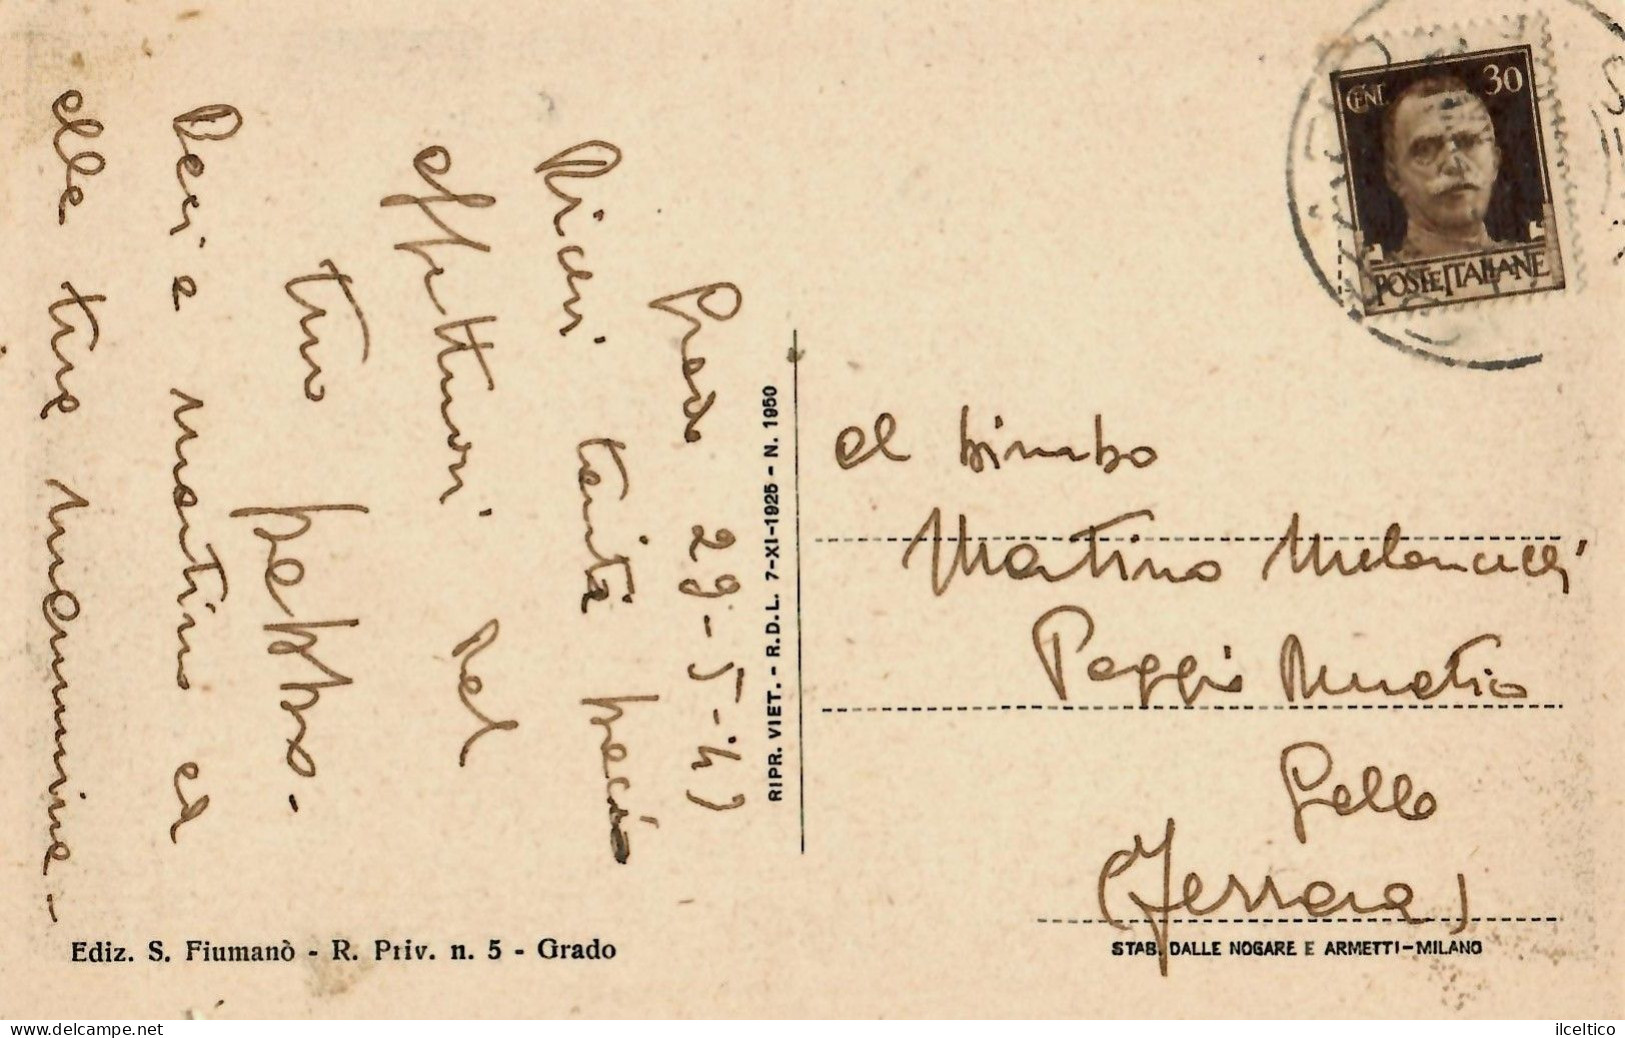 Grado 29-5-42
Ricevi tanti baci
affettuosi del
tuo babbo.
Baci a Martino ed
alle tue mammine -
CENT. 30
POSTE ITALIANE
RIPR. VIET. - R.D.L. 7-XI-1925 - N. 1950
al bimbo
Martino
Poggio Renatico
Gallo
(Ferrara)
Ediz. S. Fiumanò - R. Priv. n. 5 - Grado
STAB. DALLE NOGARE E ARMETTI-MILANO
delcampe.net
ilceltico